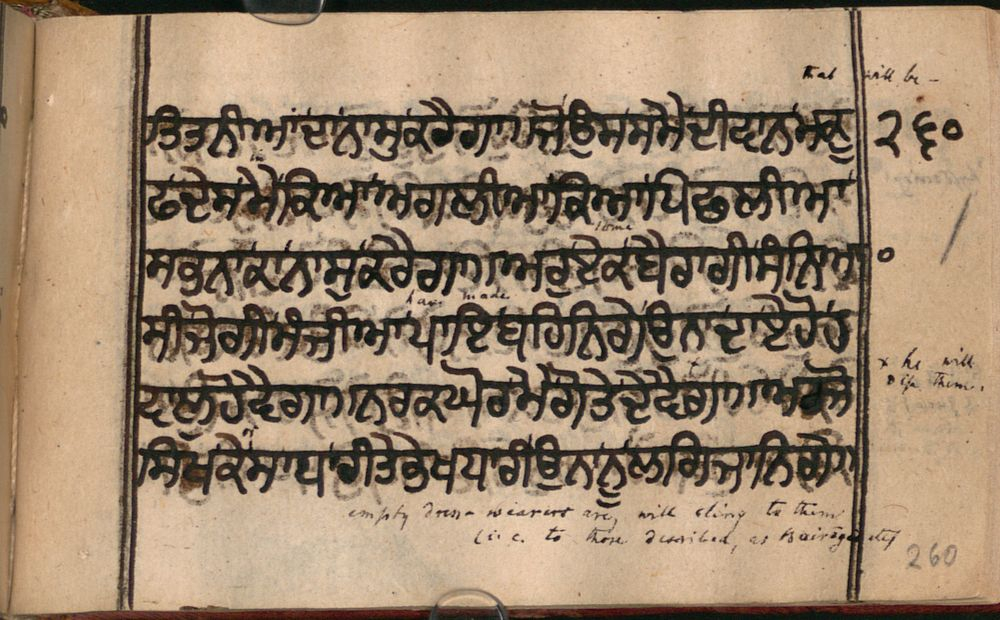 that will be -
ਤਿਤਨੀਆਂ ਦਾ ਨਾਸੁ ਕਰੈਗਾ॥ ਜੋ ਉਸ ਸਮੈ ਦੀ ਦਾਨਸ
੨੬੦
ਛਦੇ ਸਮੈ ਕਿਆ ਅਗਲੀਆ ਕਿਆ ਪਿਛਲੀਆ
some
ਸਭਨਾ ਕਾ ਨਾਸੁ ਕਰੈਗਾ॥ ਅਰੁ ਏਕ ਬੈਰਾਗੀ ਸੰਨਿਆ
have made
ਸੀ ਜੋਗੀ ਮੰਜੀਆ ਪਾਇ ਬਹਿਨਿਗੇ ਉਨਾ ਦਾ ਏਹੋ ਹ
x he will
dip them.
ਵਾਲੁ ਹੋਵੈਗਾ॥ ਨਰਕ ਘੋਰ ਮੈ ਗੋਤੇ ਦੇਵੈਗਾ॥ ਅਰੁ ਜੋ
ਸਿਖ ਕੇ ਸਾਧਾਰੀ ਤੇ ਭੇਖਧਾਰੀ ਉਨਾ ਨੂੰ ਲਗਿ ਜਾਨਿਗੇ
empty dress wearers are, will cling to them
(i.e. to those described, as Bairagi etc)
260